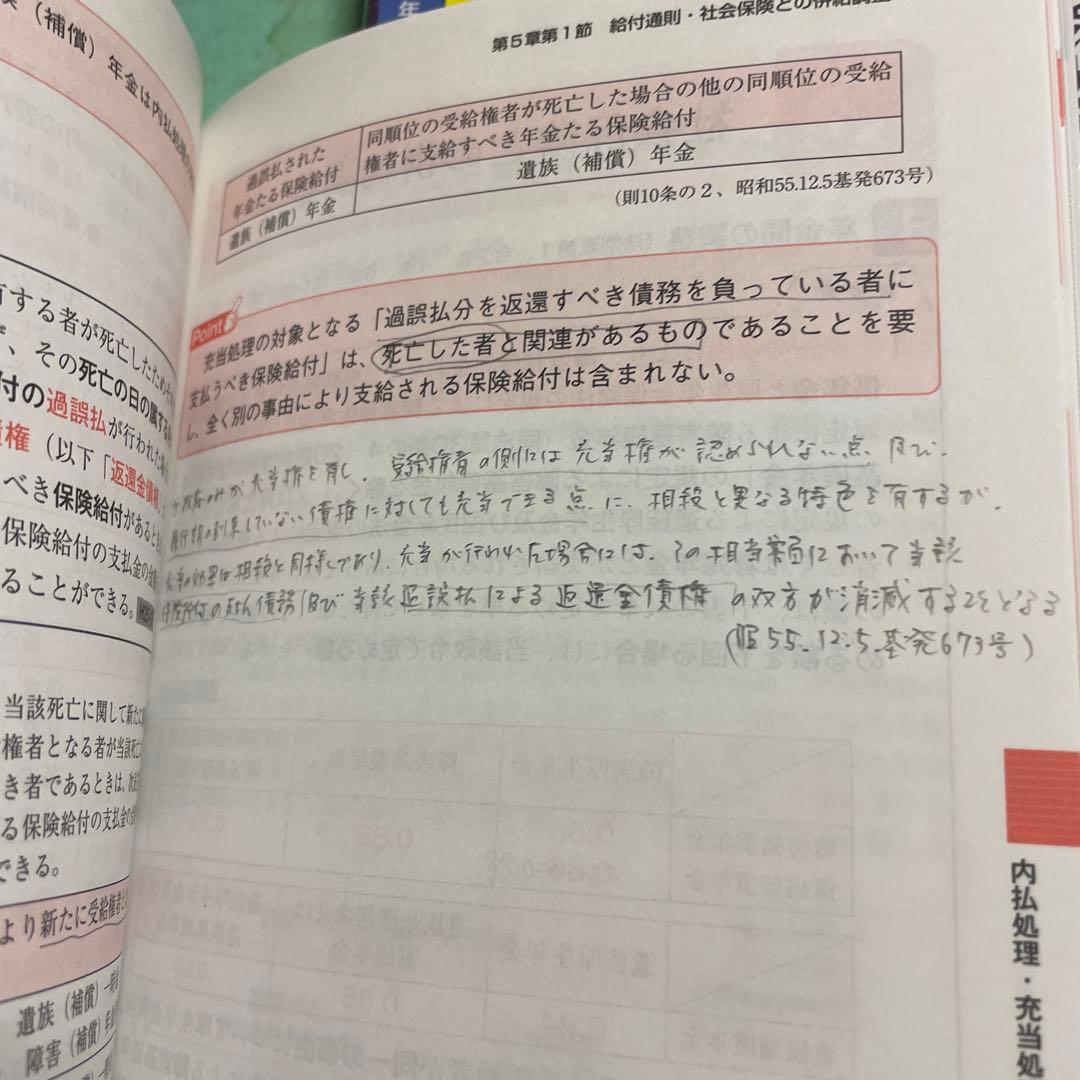 年
第5章第1節 給付通則・社会保険との併給調整
(補償)年金は内払処理の
過誤払された
年金たる保険給付
同順位の受給権者が死亡した場合の他の同順位の受給
権者に支給すべき年金たる保険給付
遺族(補償)年金
遺族(補償)年金
(則10条の2、昭和55.12.5基発673号)
Point
充当処理の対象となる「過誤払分を返還すべき債務を負っている者に
支払うべき保険給付」は、死亡した者と関連があるものであることを要
し、全く別の事由により支給される保険給付は含まれない。
のみが充当権を有し、受給権者の側には充当権が認められない点及び、
到来していない債権に対しても充当できる点に、相殺と異なる特色を有するが、
効果は相殺と同様であり、充当が行われた場合には、その相当額において当該
保険給付の支払債務及び当該過誤払による返還金債権の双方が消滅することとなる
(昭55.12.5.基発673号)
有する者が死亡したため
、その死亡の日の属する
付の過誤払が行われた
権(以下「返還金債権
べき保険給付があるとき
保険給付の支払金の金
ることができる。
当該死亡に関して新たに
権者となる者が当該死亡
き者であるときは、
る保険給付の支払金の
できる。
より新たに受給権者
遺族(補償)一時
障害(補償)年金
内払処理・充当処